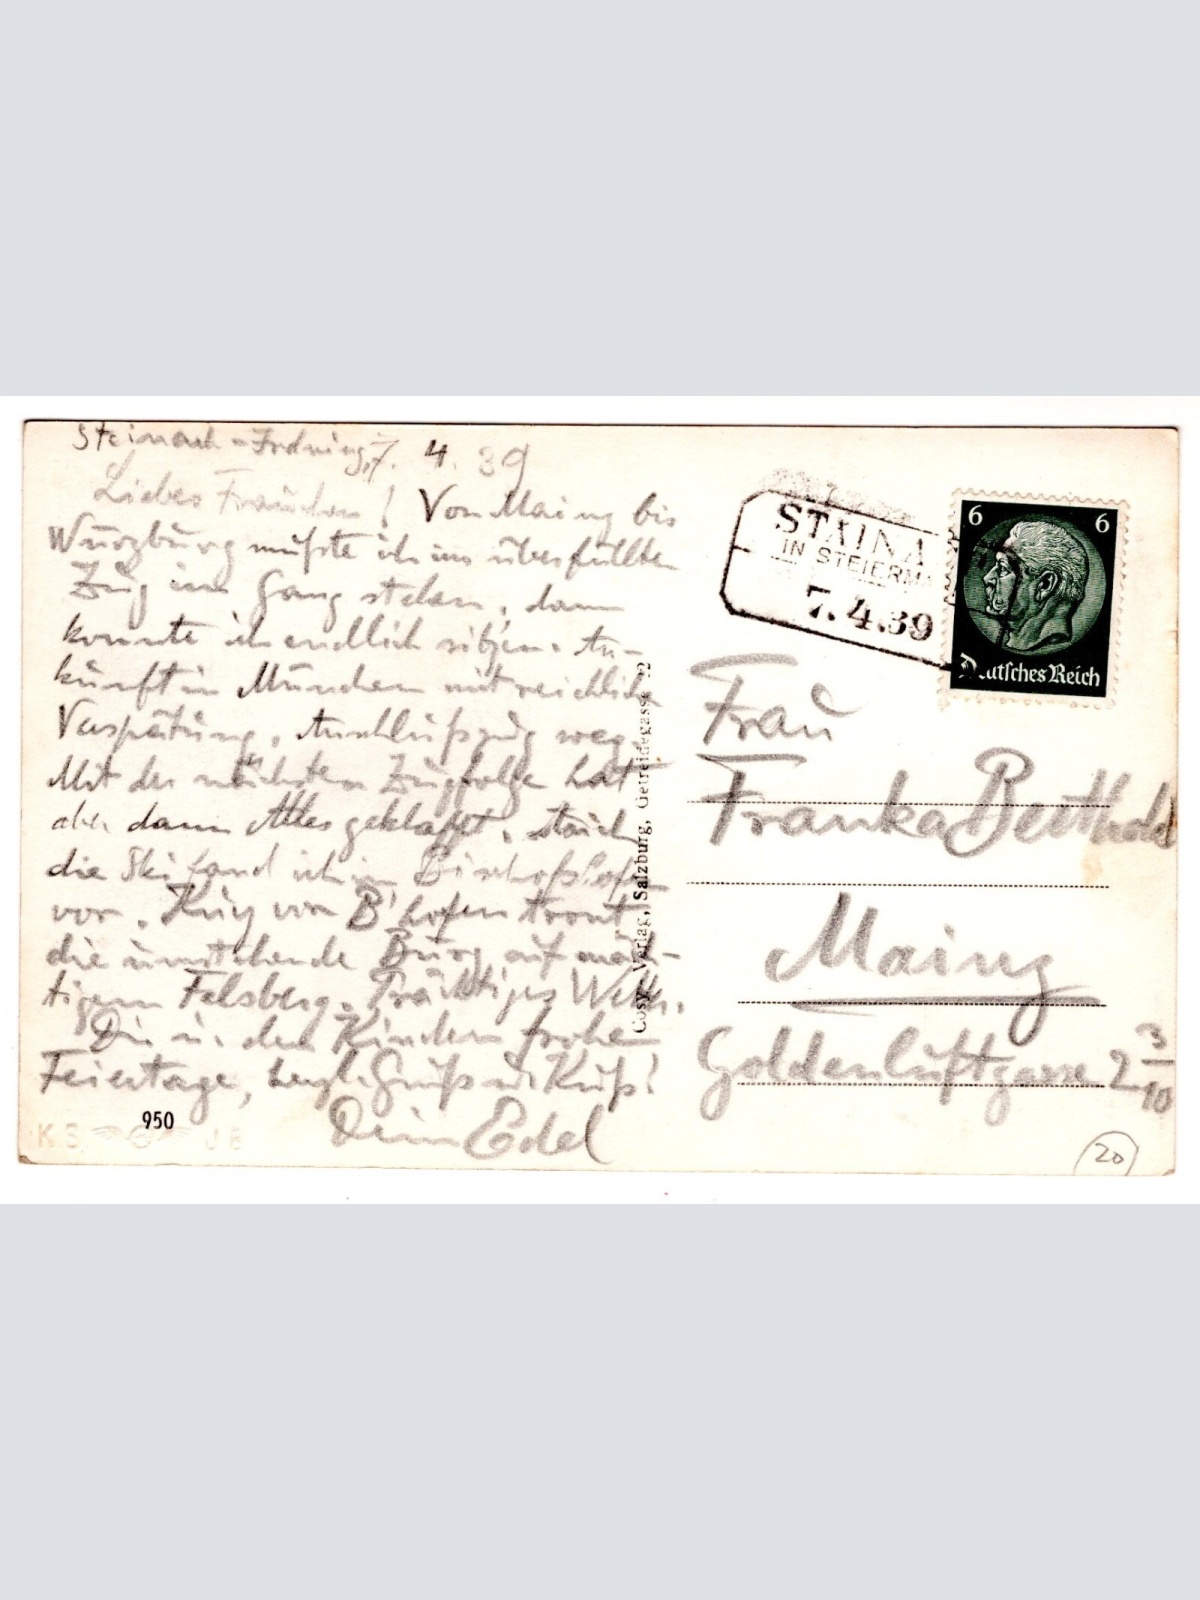 Steinach-Irdning, 7. 4. 39
Liebes Frauchen! Von Mainz bis
Würzburg mußte ich im überfüllten
Zug im Gang stehen, dann
konnte ich endlich sitzen. An-
kunft in München mit reichlicher
Verspätung, Anschlußzug weg.
Mit der nächsten Zugfolge hat
aber dann Alles geklappt,
die Ski fand ich in Bischofshofen
vor. Kurz von B'hofen tront
die umstehende Burg auf mäch-
tigem Felsberg. Prächtiges Wetter.
Dir u. den Kindern frohe
Feiertage, herzl. Gruß u. Kuß!
Dein Edel
950
K.S. J B
Cosy-Verlag, Salzburg, Getreidegasse 22
STAINA
IN STEIERM
7.4.39
6 6
Deutsches Reich
Frau
Franka Berthold
Mainz
Goldenluftgasse 2 3/10
20